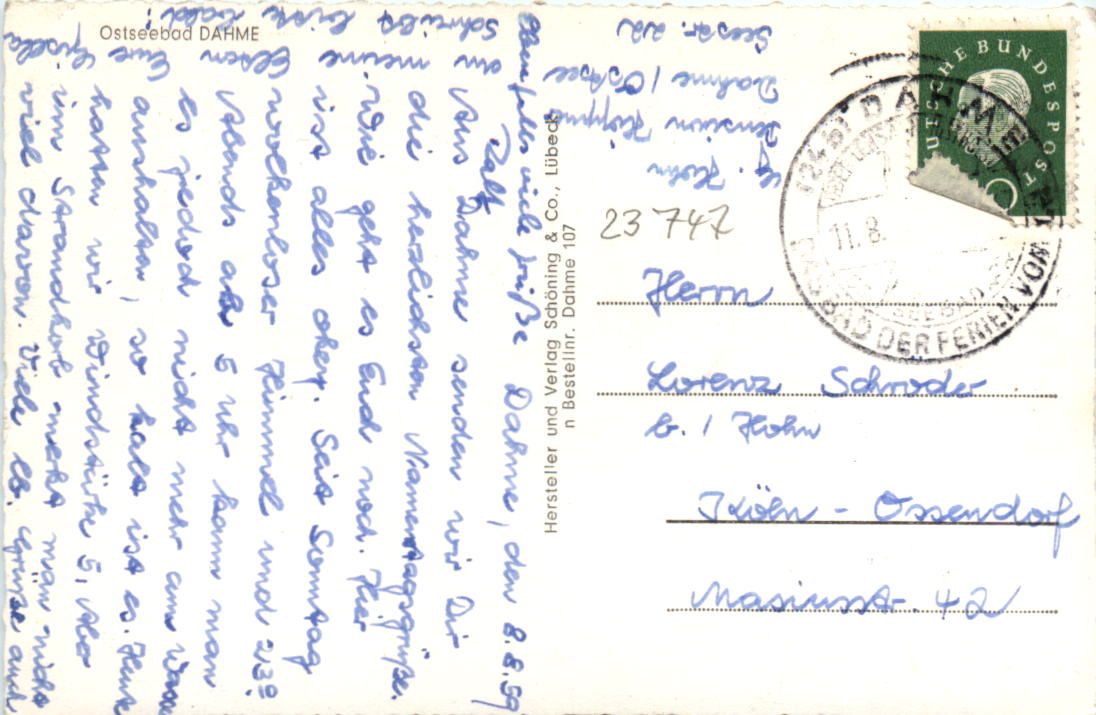 Ostseebad DAHME
Dahme, den 8.8.59
Aus Dahme senden wir Dir
die herzlichsten Namenstagsgrüße.
Wie geht es Euch noch. Hier
ist alles okey. Seit Sonntag
wolkenloser Himmel und 23°
Abends ab 5 Uhr kann man
es jedoch nicht mehr am Wasser
aushalten, so kalt ist es. Heute
hatten wir Windstärke 5, Aber
im Strandkorb merkt man nicht
viel davon. Viele lb. Grüße auch
an meine Eltern Eure Gisela
Schreibt bitte bald!
Ebenfalls viele Grüße
Ralf
Hersteller und Verlag Schöning & Co., Lübeck
n Bestellnr. Dahme 107
Hohn
Pension
Dahme / Ostsee
Seestr. 22
23747
DEUTSCHE BUNDESPOST
DAHME
11.8.
BAD DER FERIEN VOM
Herrn
Lorenz Schröder
b. / Hohn
Köln - Ossendorf
Masiusstr. 42